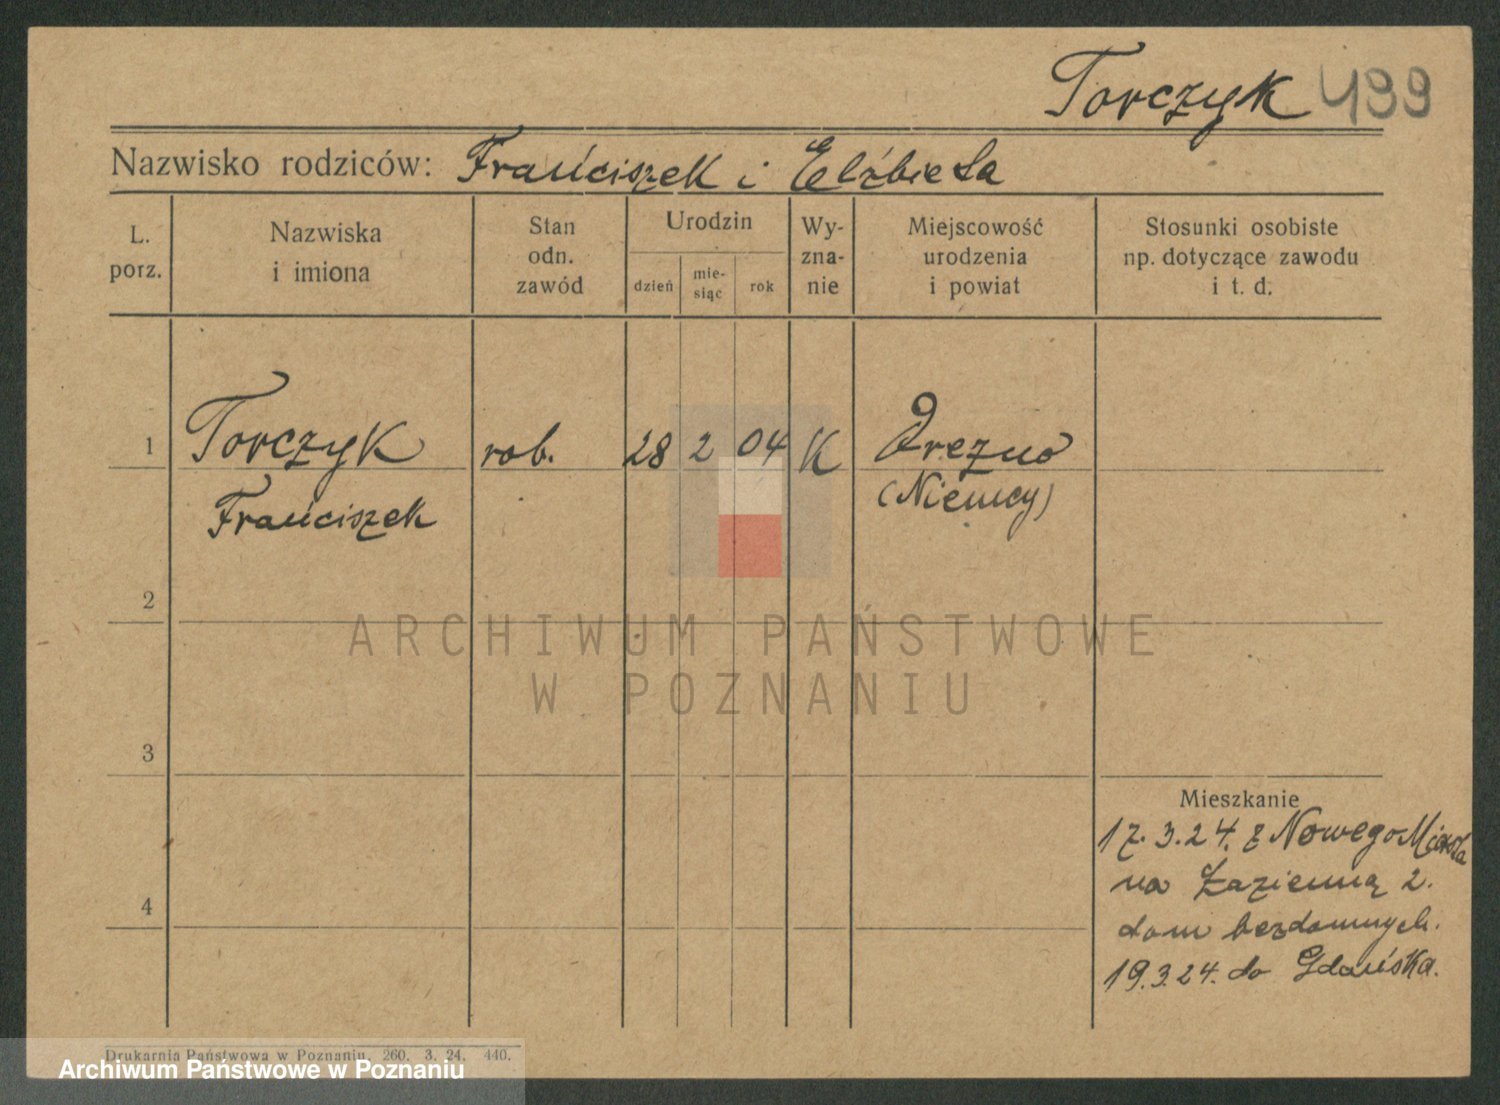 Torczyk 499
Nazwisko rodziców: Franciszek i Elżbieta
L. porz.
Nazwiska i imiona
Stan odn. zawód
Urodzin
dzień
mie-siąc
rok
Wy-zna-nie
Miejscowość urodzenia i powiat
Stosunki osobiste np. dotyczące zawodu i t. d.
1 Torczyk rob. 28 2 04 K Drezno
Franciszek (Niemcy)
2
ARCHIWUM PAŃSTWOWE
W POZNANIU
3
Mieszkanie
17.3.24. z Nowego Miasta
4 na Łazienną 2.
dom bezdomnych.
19.3.24. do Gdańska.
Drukarnia Państwowa w Poznaniu. 260. 3. 24. 440.
Archiwum Państwowe w Poznaniu